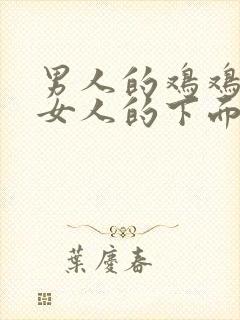 男人的鸡鸡
女人的下面
葉慶春